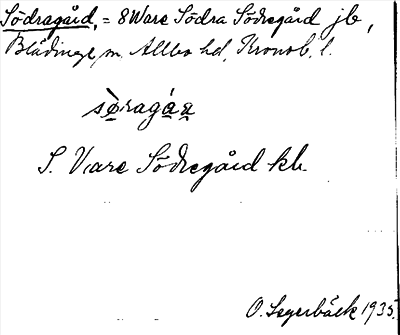 Södragård, = 8 Ware Södra Södregård jb,
Blädinge, sn. Allbo hd, Kronob. l.
sǿragá̱a̱
S. Vare Södregård kb.
O. Segerbäck 1935.